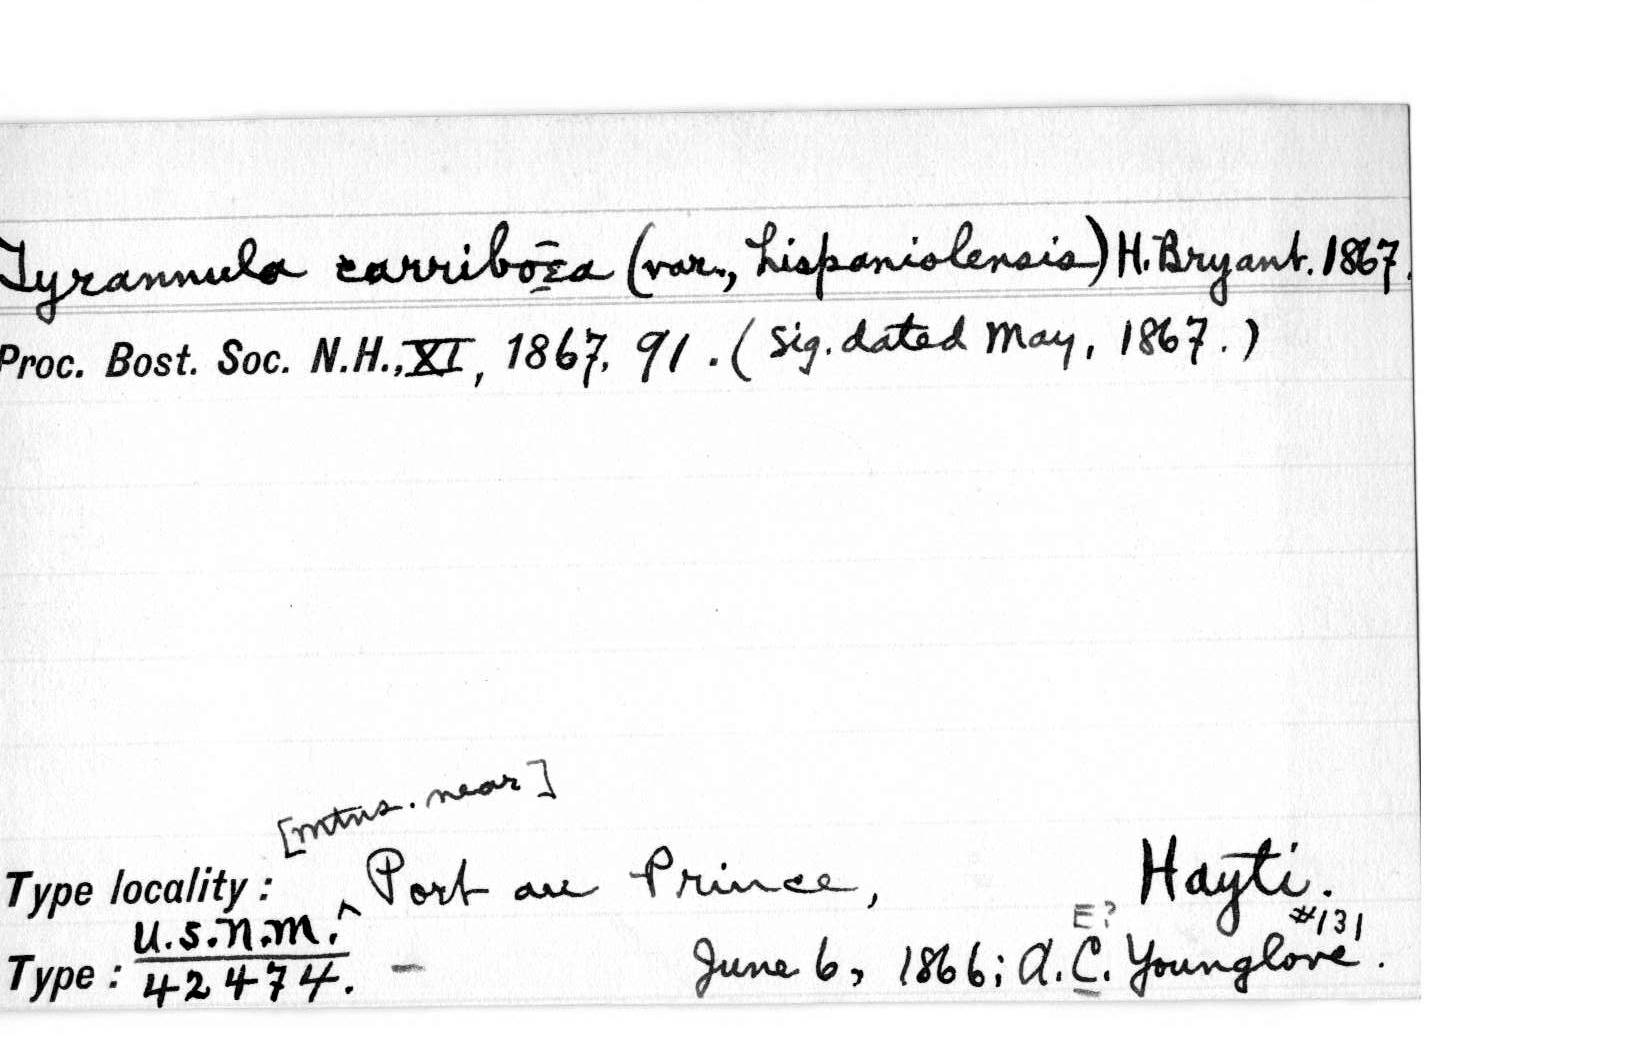 Tyrannula carribœa (var., hispaniolensis) H. Bryant. 1867.
Proc. Bost. Soc. N.H., XI, 1867, 91. (Sig. dated May, 1867.)
[mtns. near]
Type locality: ^ Port au Prince, Hayti.
U.S.N.M. E? #131
Type: 42474. – June 6, 1866; A. C. Younglove.